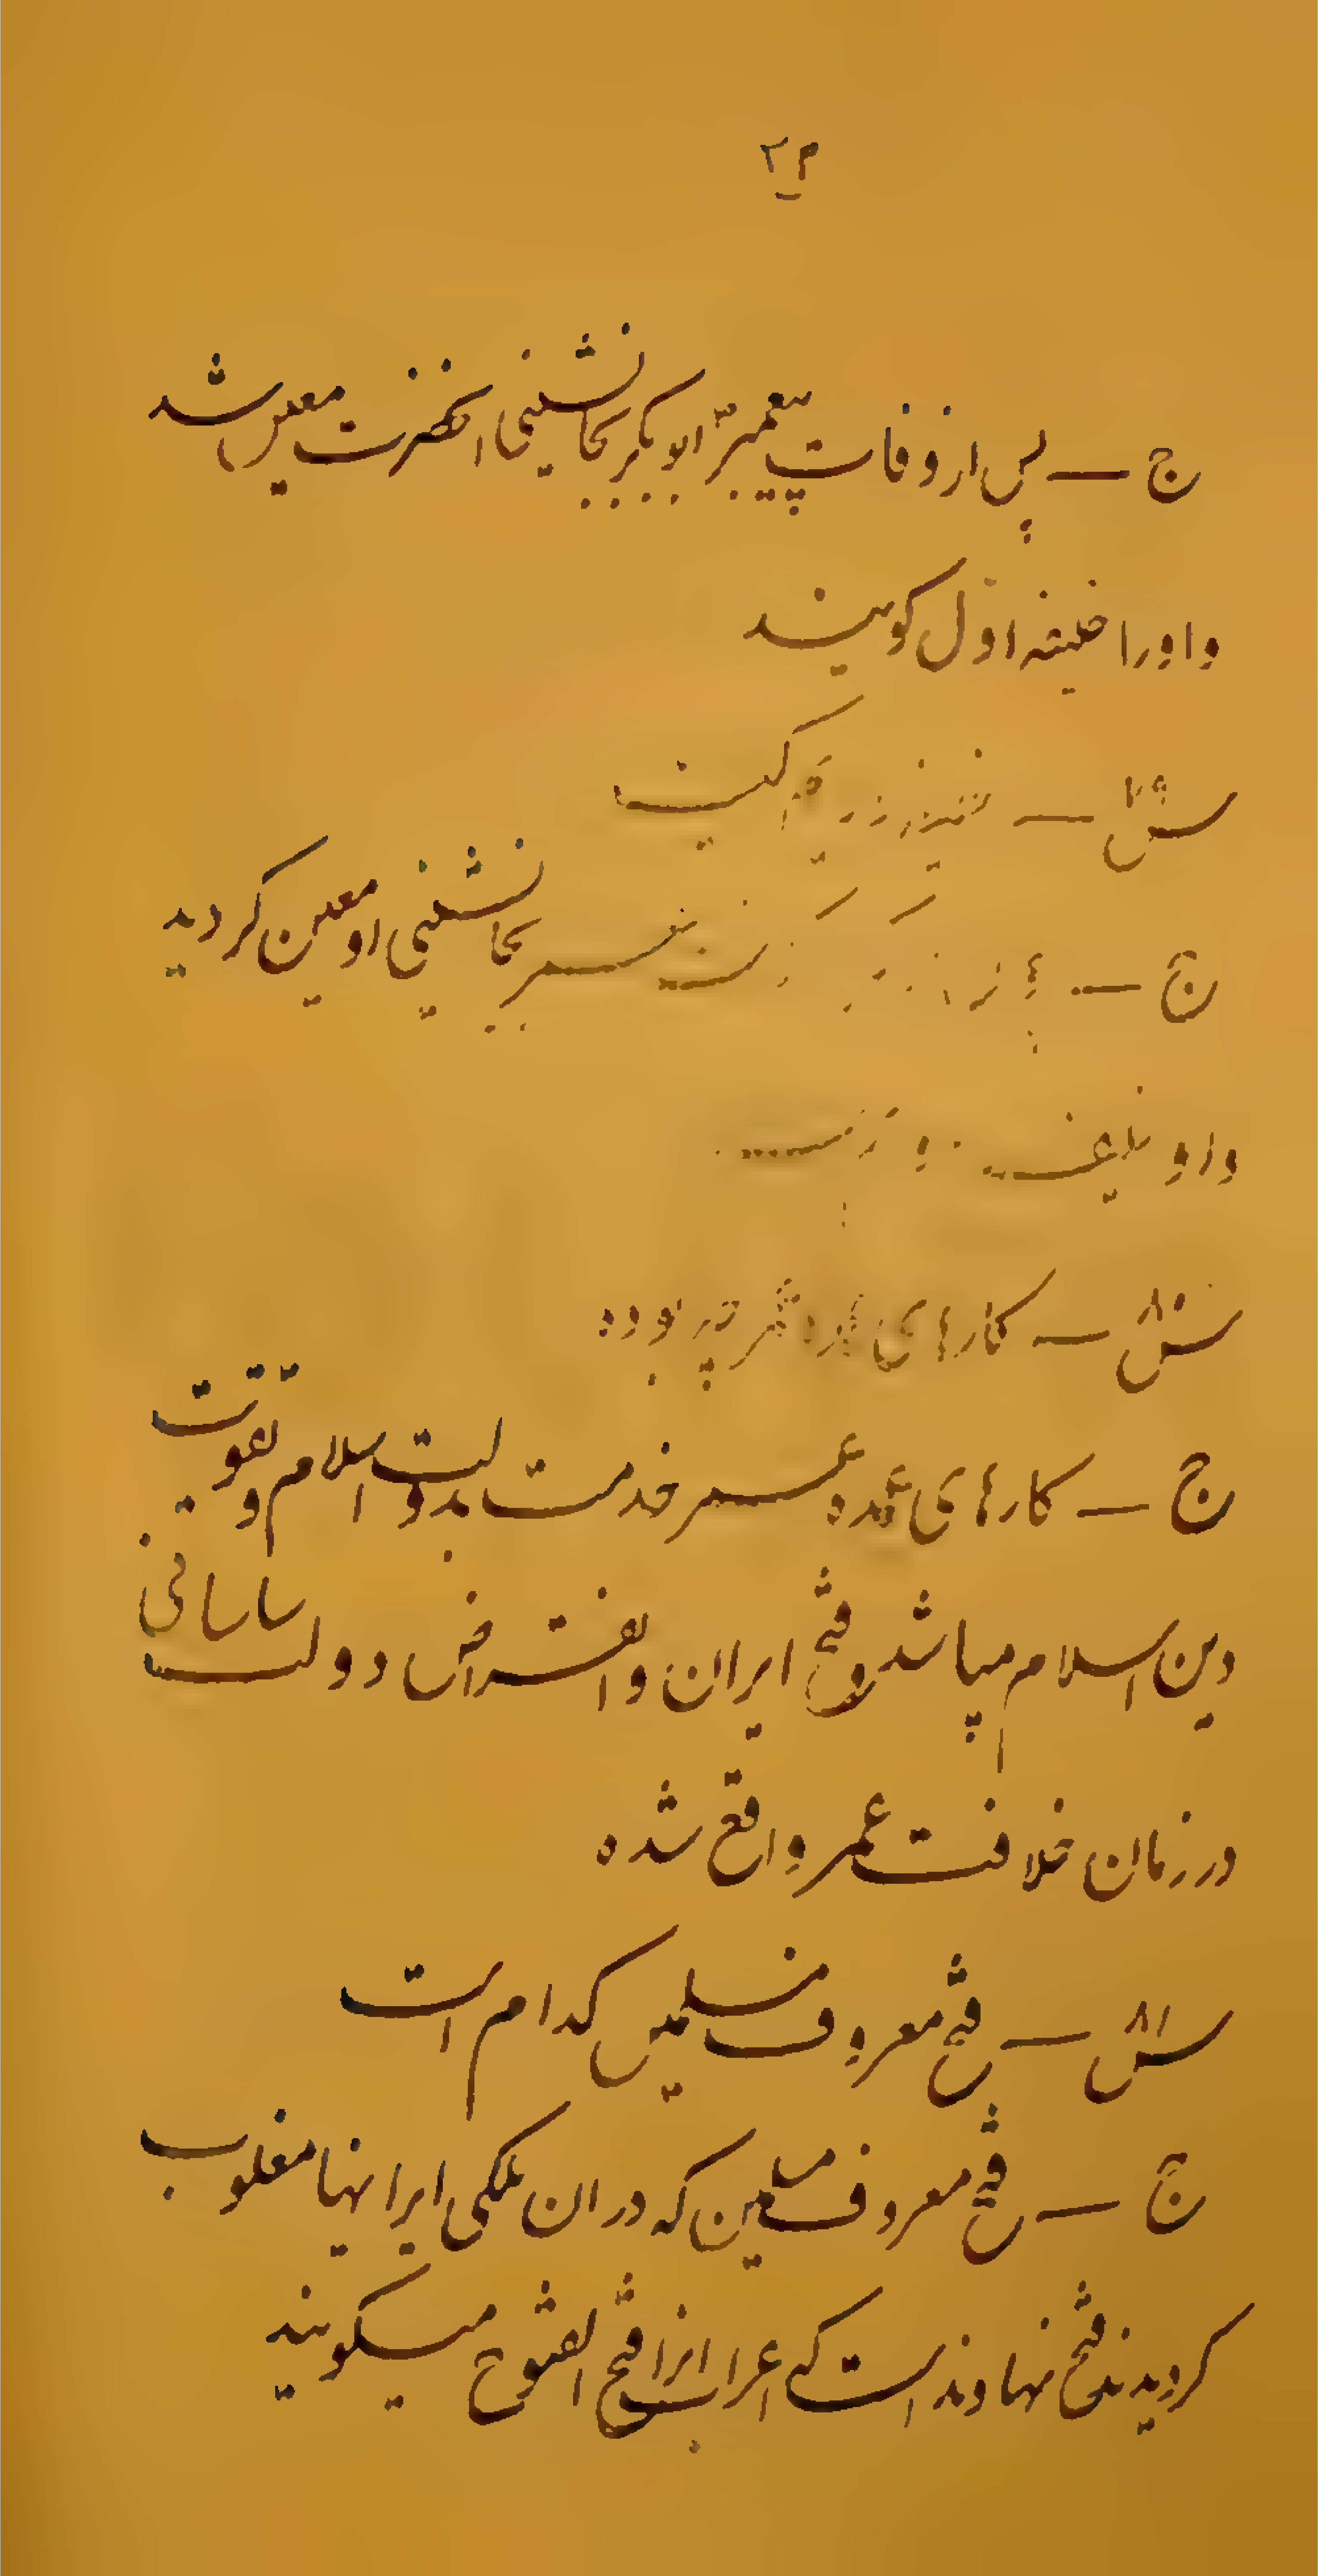 ۲۳
ج — پس از وفات پیغمبر ابوبکر بجانشینی انحضرت معین شد
و او را خلیفه اوّل کویند
س — کیست
ج — بجانشینی او معین کردید
و او
س — کارهای عمده عمر چه بوده
ج — کارهای عمده عمر خدمت بدولت اسلام و تقویت
دین اسلام میباشد و فتح ایران و انقراض دولت ساسانی
در زمان خلافت عمر واقع شده
س — فتح معروف مسلمین کدام است
ج — فتح معروف مسلمین که در ان بکلی ایرانیها مغلوب
کردیدند فتح نهاوند است که اعراب انرا فتح الفتوح میکویند